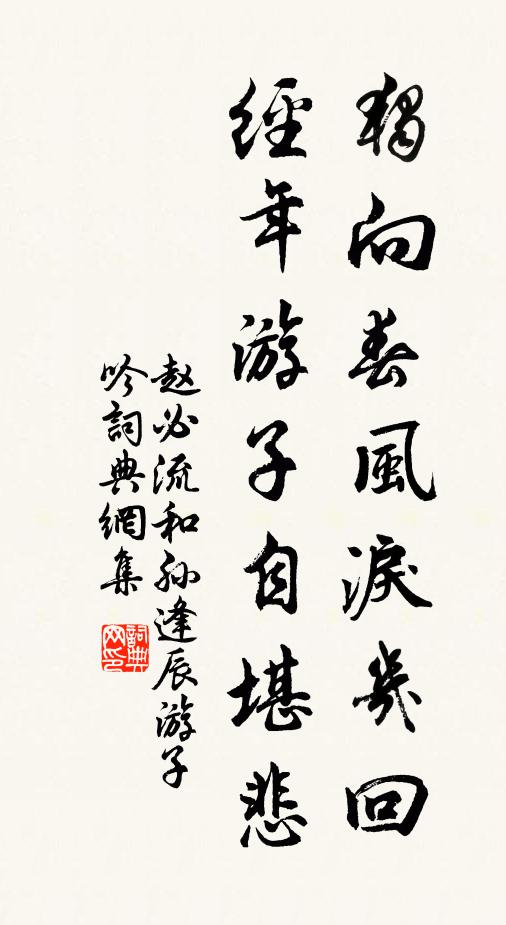 獨向春風淚幾回
經年游子自堪悲
赵必流和孙逢辰游子
吟詞典網集
詞典
网印